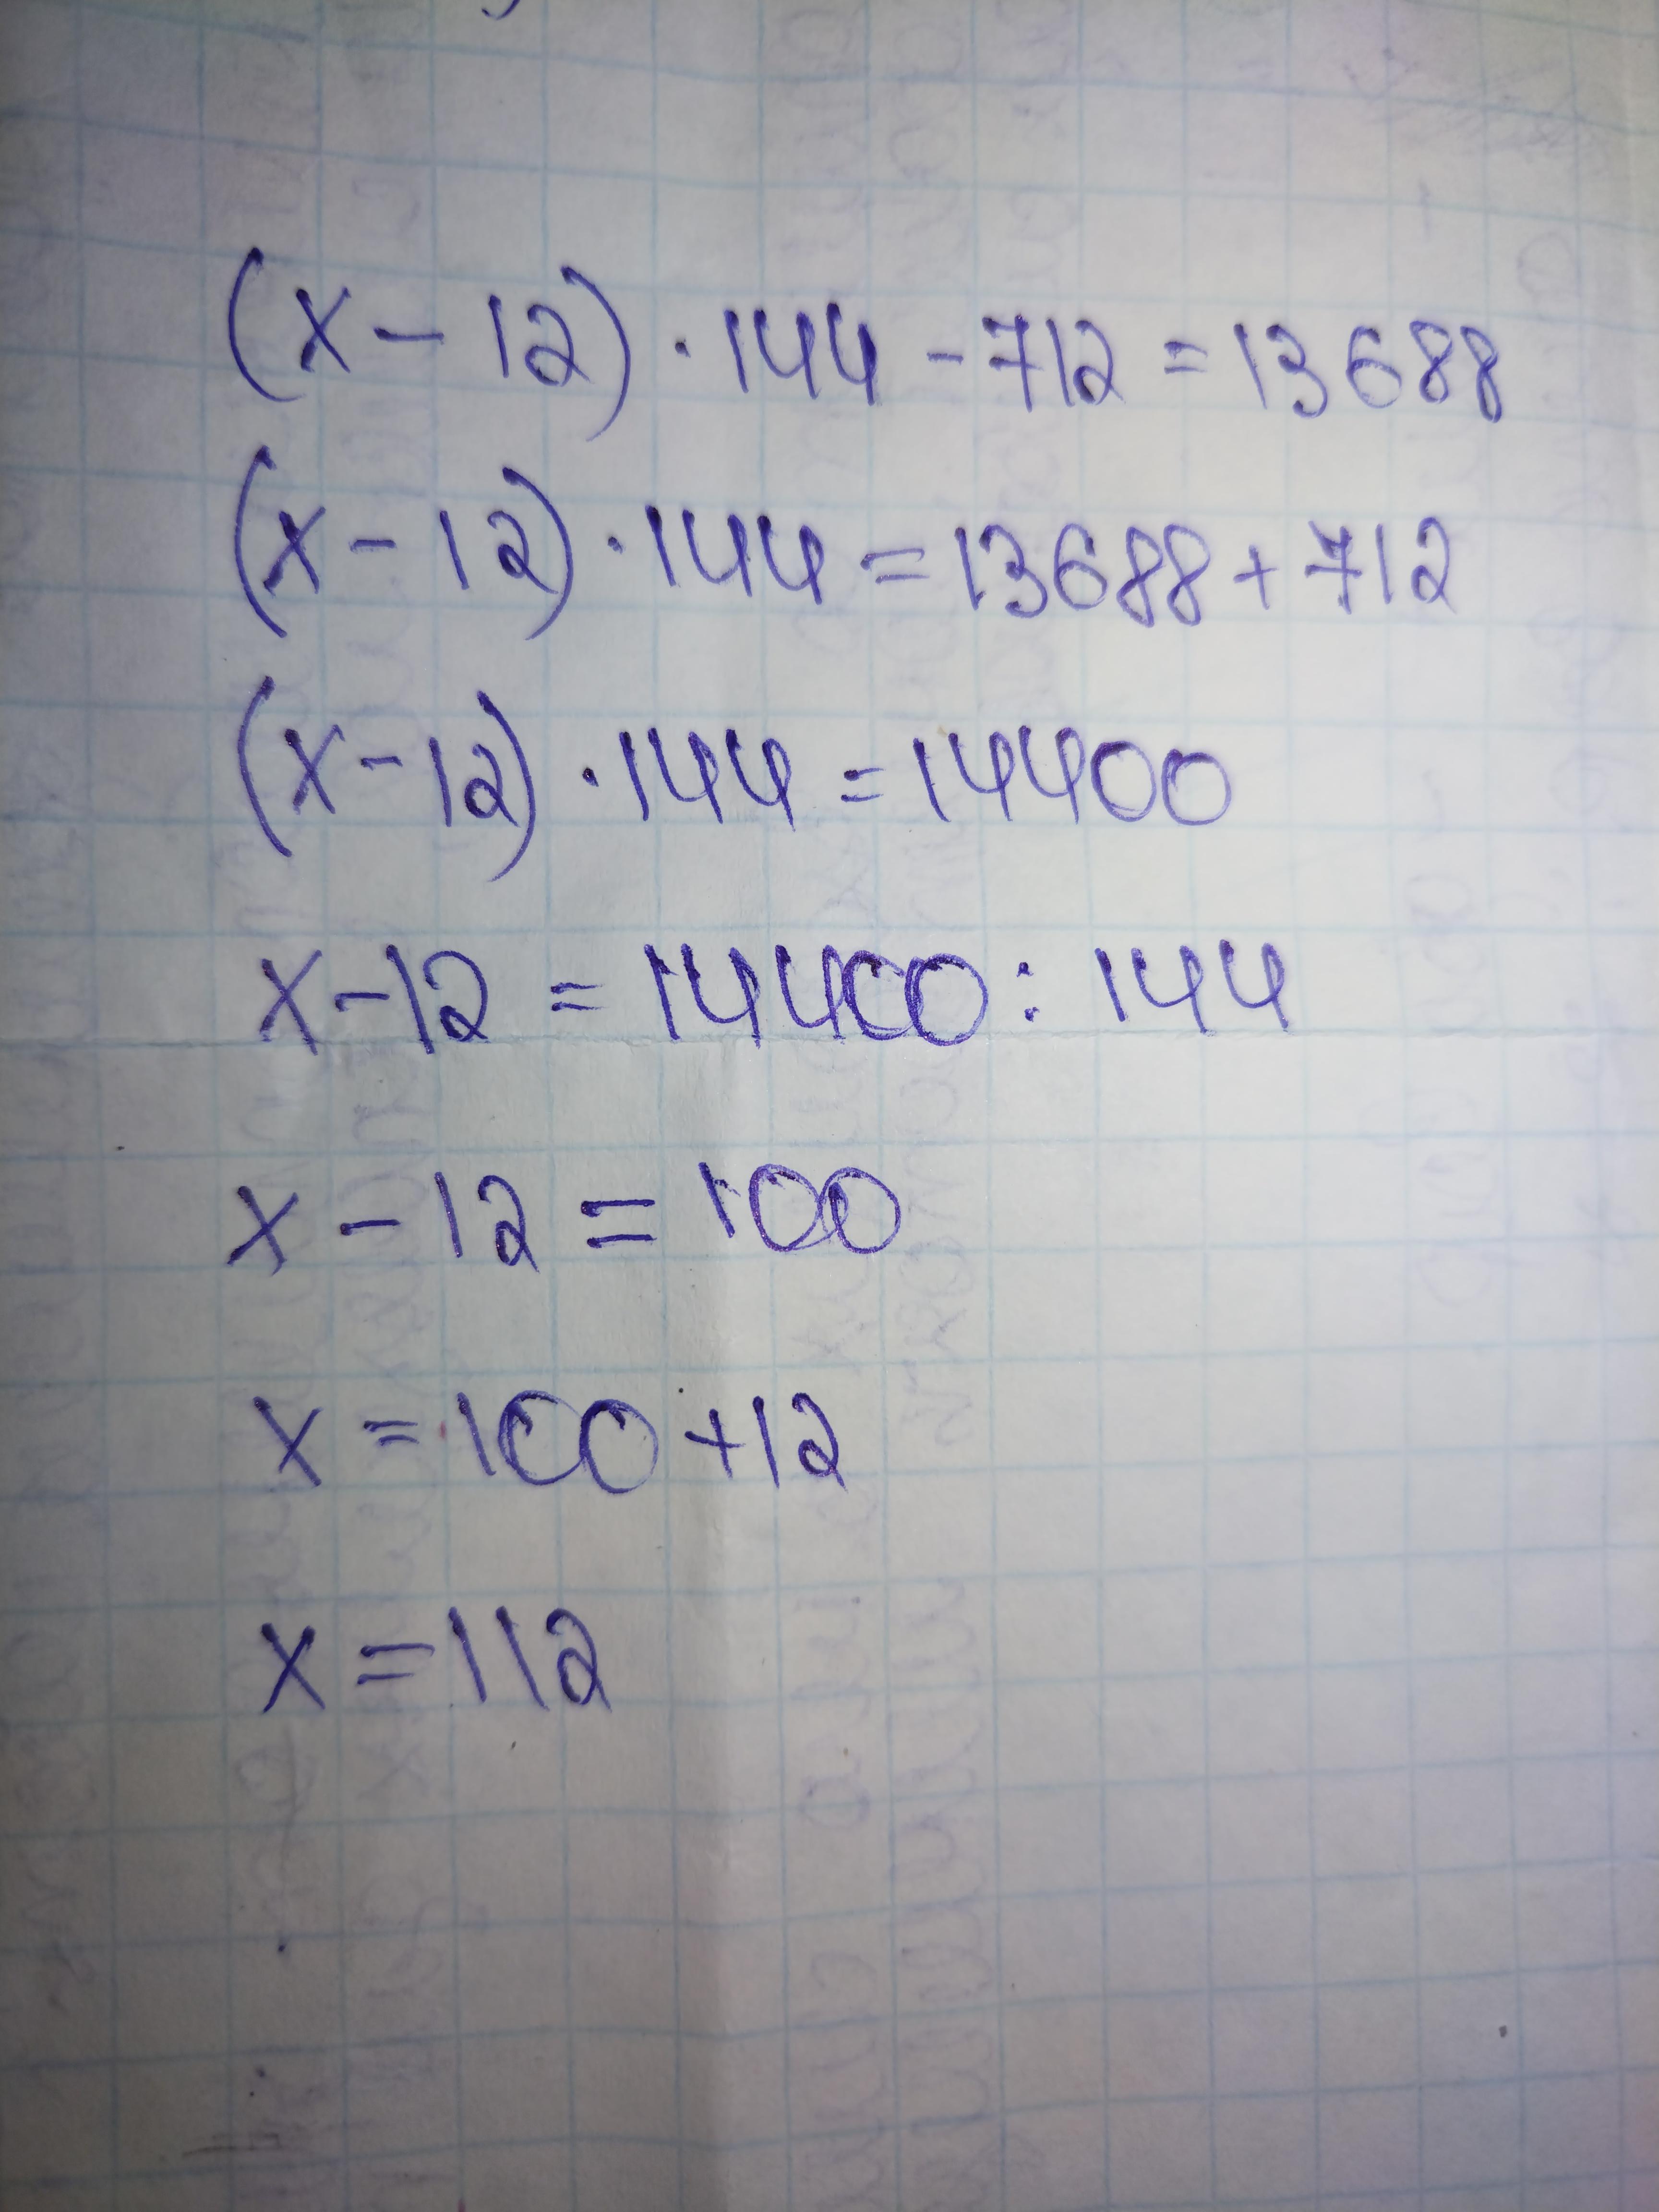 (x - 12) · 144 - 712 = 13688
(x - 12) · 144 = 13688 + 712
(x - 12) · 144 = 14400
x - 12 = 14400 : 144
x - 12 = 100
x = 100 + 12
x = 112